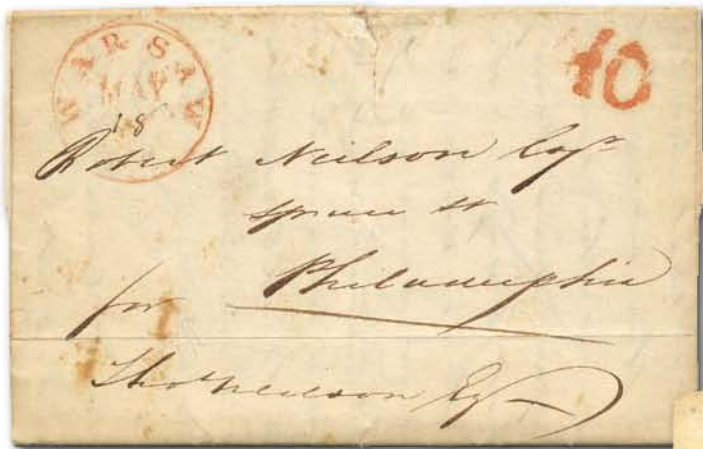 WARSAW
MAY
18
10
Robert Neilson Esqr
Spruce St
Philadelphia
for
Thos Neilson Esq